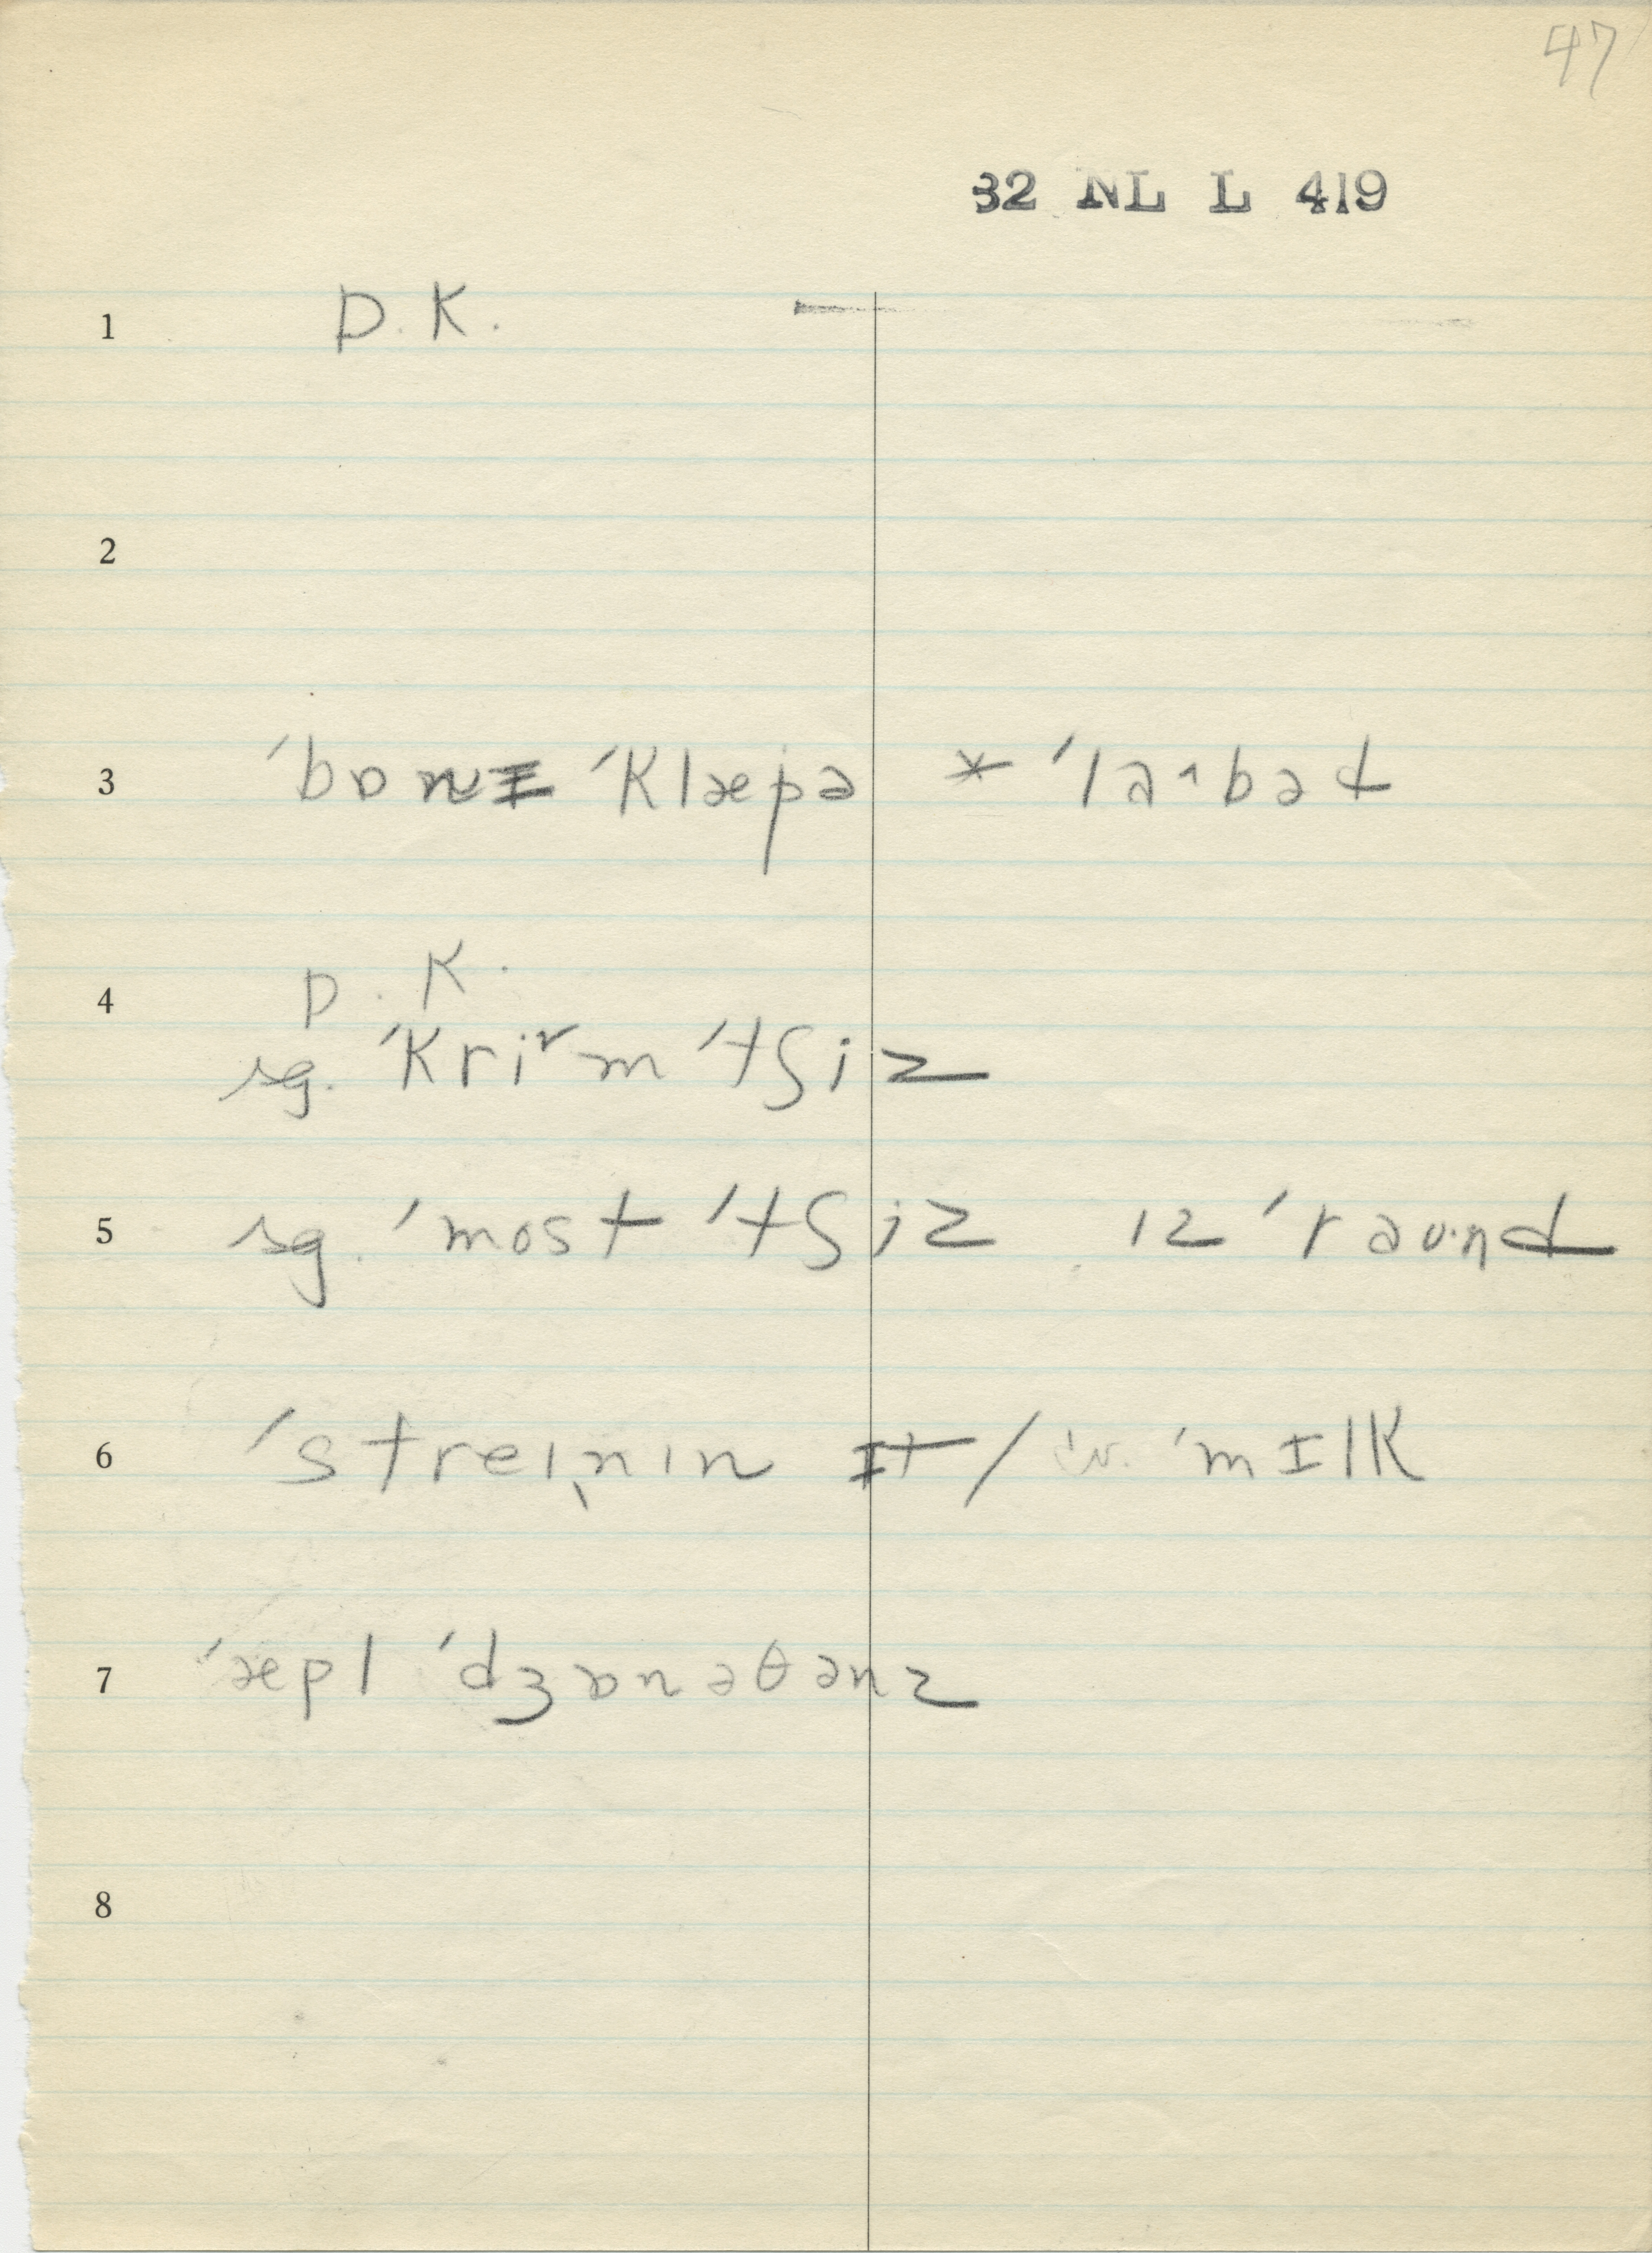 47
32 NL L 419
1 D. K.
2
3 ˈbɒnɪ ˈklæpə * ˈlaˑbəd
4 D. K.
sg. ˈkri˅m ˈtʃiz
5 sg. ˈmost ˈtʃiz ɪz ˈraʊˑnd
6 ˈstreɪnɪn ɪt / ˈmɪlk
7 ˈæpl ˈdʒɒnəθənz
8